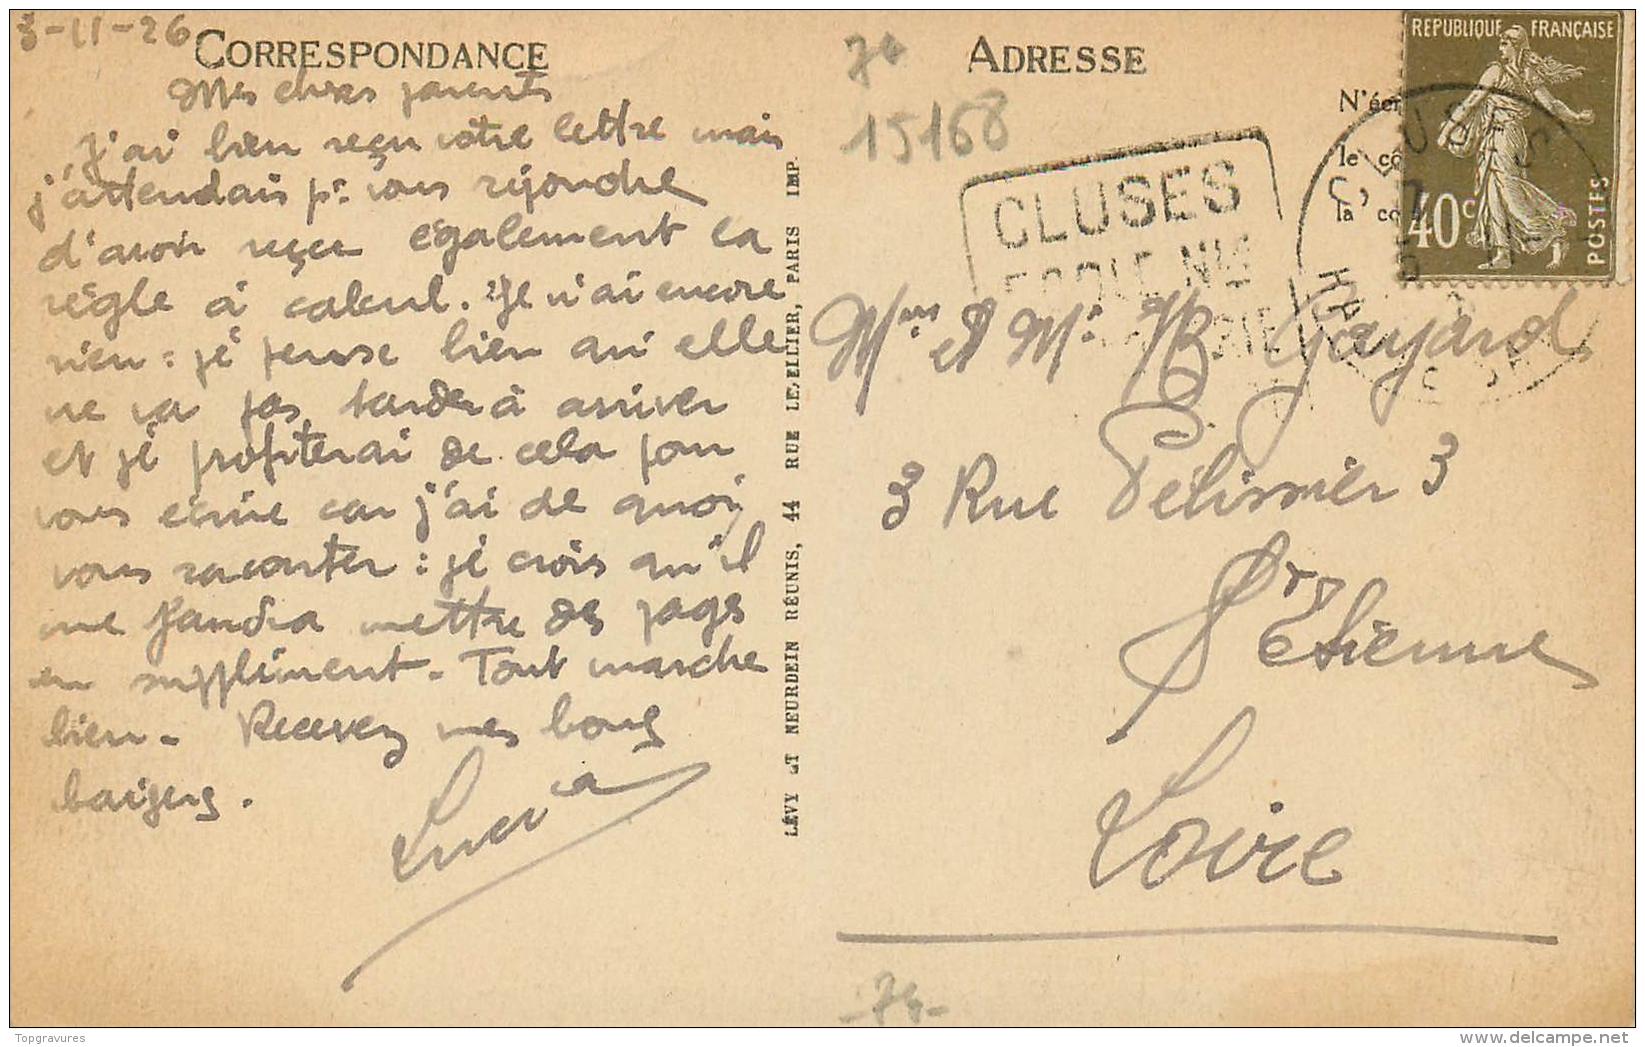 3-11-26
CORRESPONDANCE
Mes chers parents
J'ai bien reçu votre lettre mais
j'attendais pr. vous répondre
d'avoir reçu également la
règle à calcul. Je n'ai encore
rien : je pense bien qu'elle
ne va pas tarder à arriver
et je profiterai de cela pour
vous écrire car j'ai de quoi
vous raconter : je crois qu'il
me faudra mettre des pages
en supplément. Tout marche
bien. Recevez mes bons
baisers.
LÉVY ET NEURDEIN RÉUNIS, 44 RUE LETELLIER, PARIS IMP.
74
15168
ADRESSE
N'écr
le co
la co
REPUBLIQUE FRANÇAISE
40c
POSTES
CLUSES
ECOLE Nle
CLUSES
Mme et Mr. Gayard
3 Rue Pélissier 3
St Etienne
Loire
74
Topgravures
delcampe.net